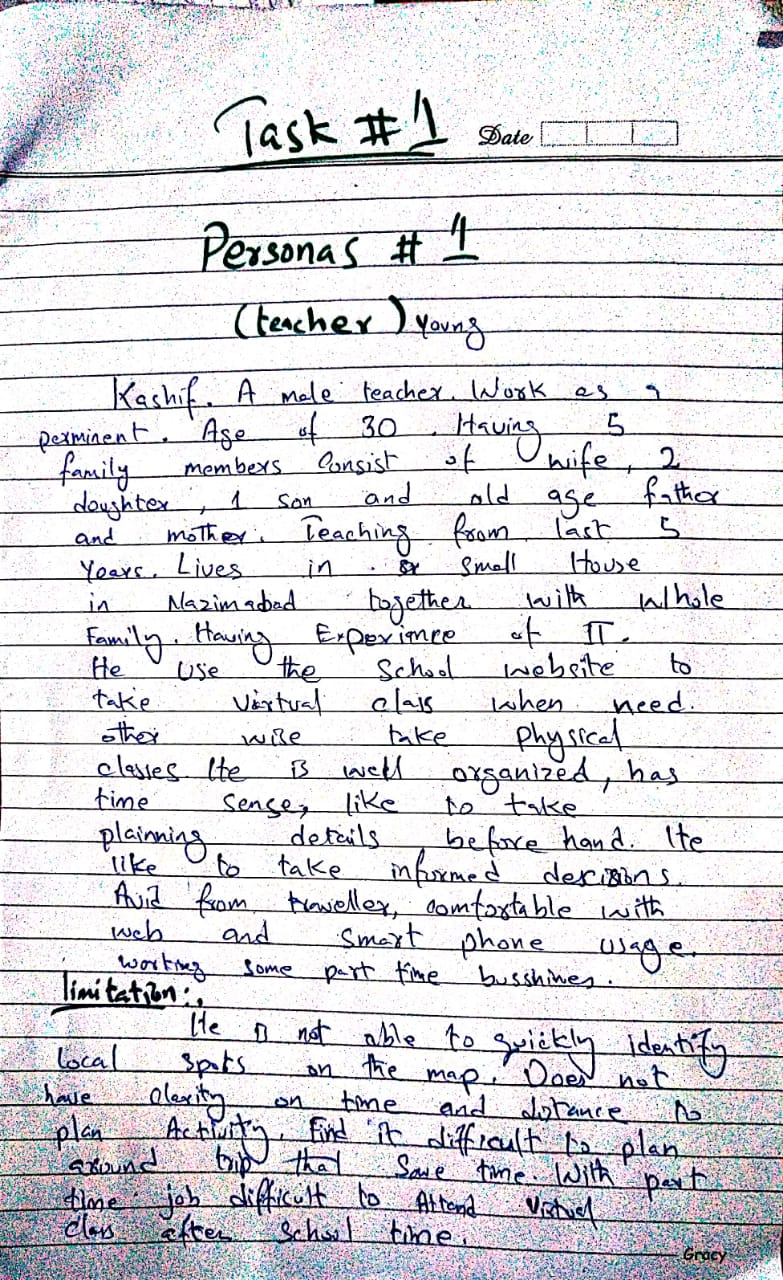 Task #1
Date
Personas #1
(teacher) young
Kashif. A male teacher. Work as a
perminent. Age of 30. Having 5
family members Consist of wife, 2
doughter, 1 son and old age father
and mother. Teaching from last 5
Years. Lives in small House
in Nazimabad together with whole
Family. Having Experience of IT.
He use the School website to
take virtual class when need.
other wise take physical
classes. He is well organized, has
time sense, like to take
plainning details before hand. He
like to take informed decisions.
Avid from traveller, comfortable with
web and smart phone usage.
working some part time busshines.
limitation:
He is not able to quickly identify
local spots on the map. Does not
have clarity on time and distance to
plan Activity. Find it difficult to plan
around trip that save time. With part
time job difficult to Attend virtual
class after school time.
Gracy